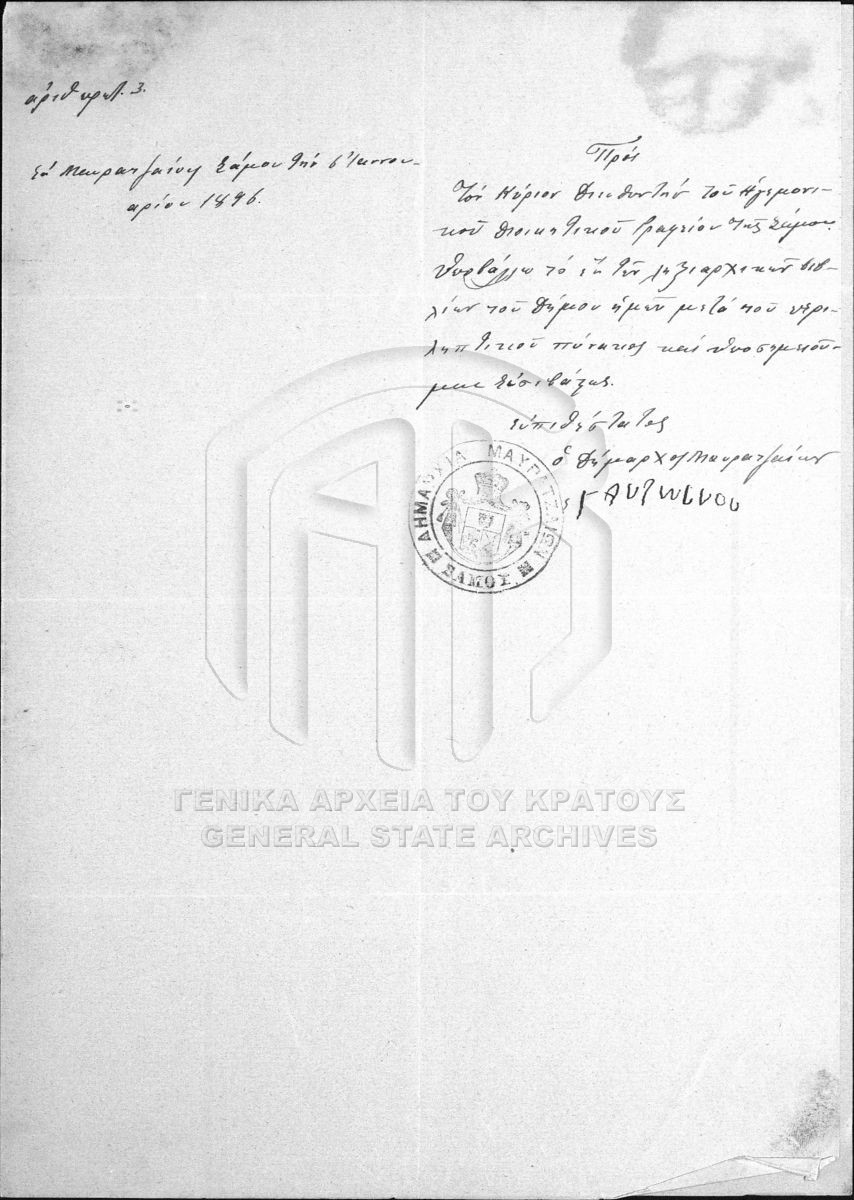 ἀριθ πρωτ. 3.
Ἐν Μαυρατζαίοις Σάμου τῇ 5 Ἰαννου-
αρίου 1896.
Πρὸς
Τὸν Κύριον Διευθυντὴν τοῦ Ἡγεμονι-
κοῦ Διοικητικοῦ Γραφείου τῆς Σάμου.
Ὑποβάλλω τὸ ἐκ τῶν ληξιαρχικῶν βιβ-
λίων τοῦ Δήμου ἡμῶν μετὰ τοῦ περι-
ληπτικοῦ πίνακος καὶ ὑποσημειοῦ-
μαι εὐσεβάστως.
Εὐπειθέστατος
ὁ Δήμαρχος Μαυρατζαίων
Γ Αντωνιου
ΔΗΜΑΡΧΙΑ ΜΑΥΡΑΤΖΑΙΩΝ
ΣΑΜΟΥ
ΓΕΝΙΚΑ ΑΡΧΕΙΑ ΤΟΥ ΚΡΑΤΟΥΣ
GENERAL STATE ARCHIVES